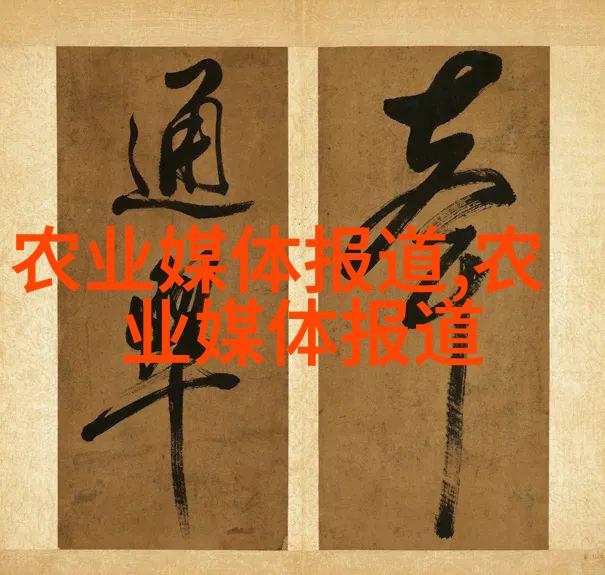 奉
通
农业媒体报道,农
业媒体报道